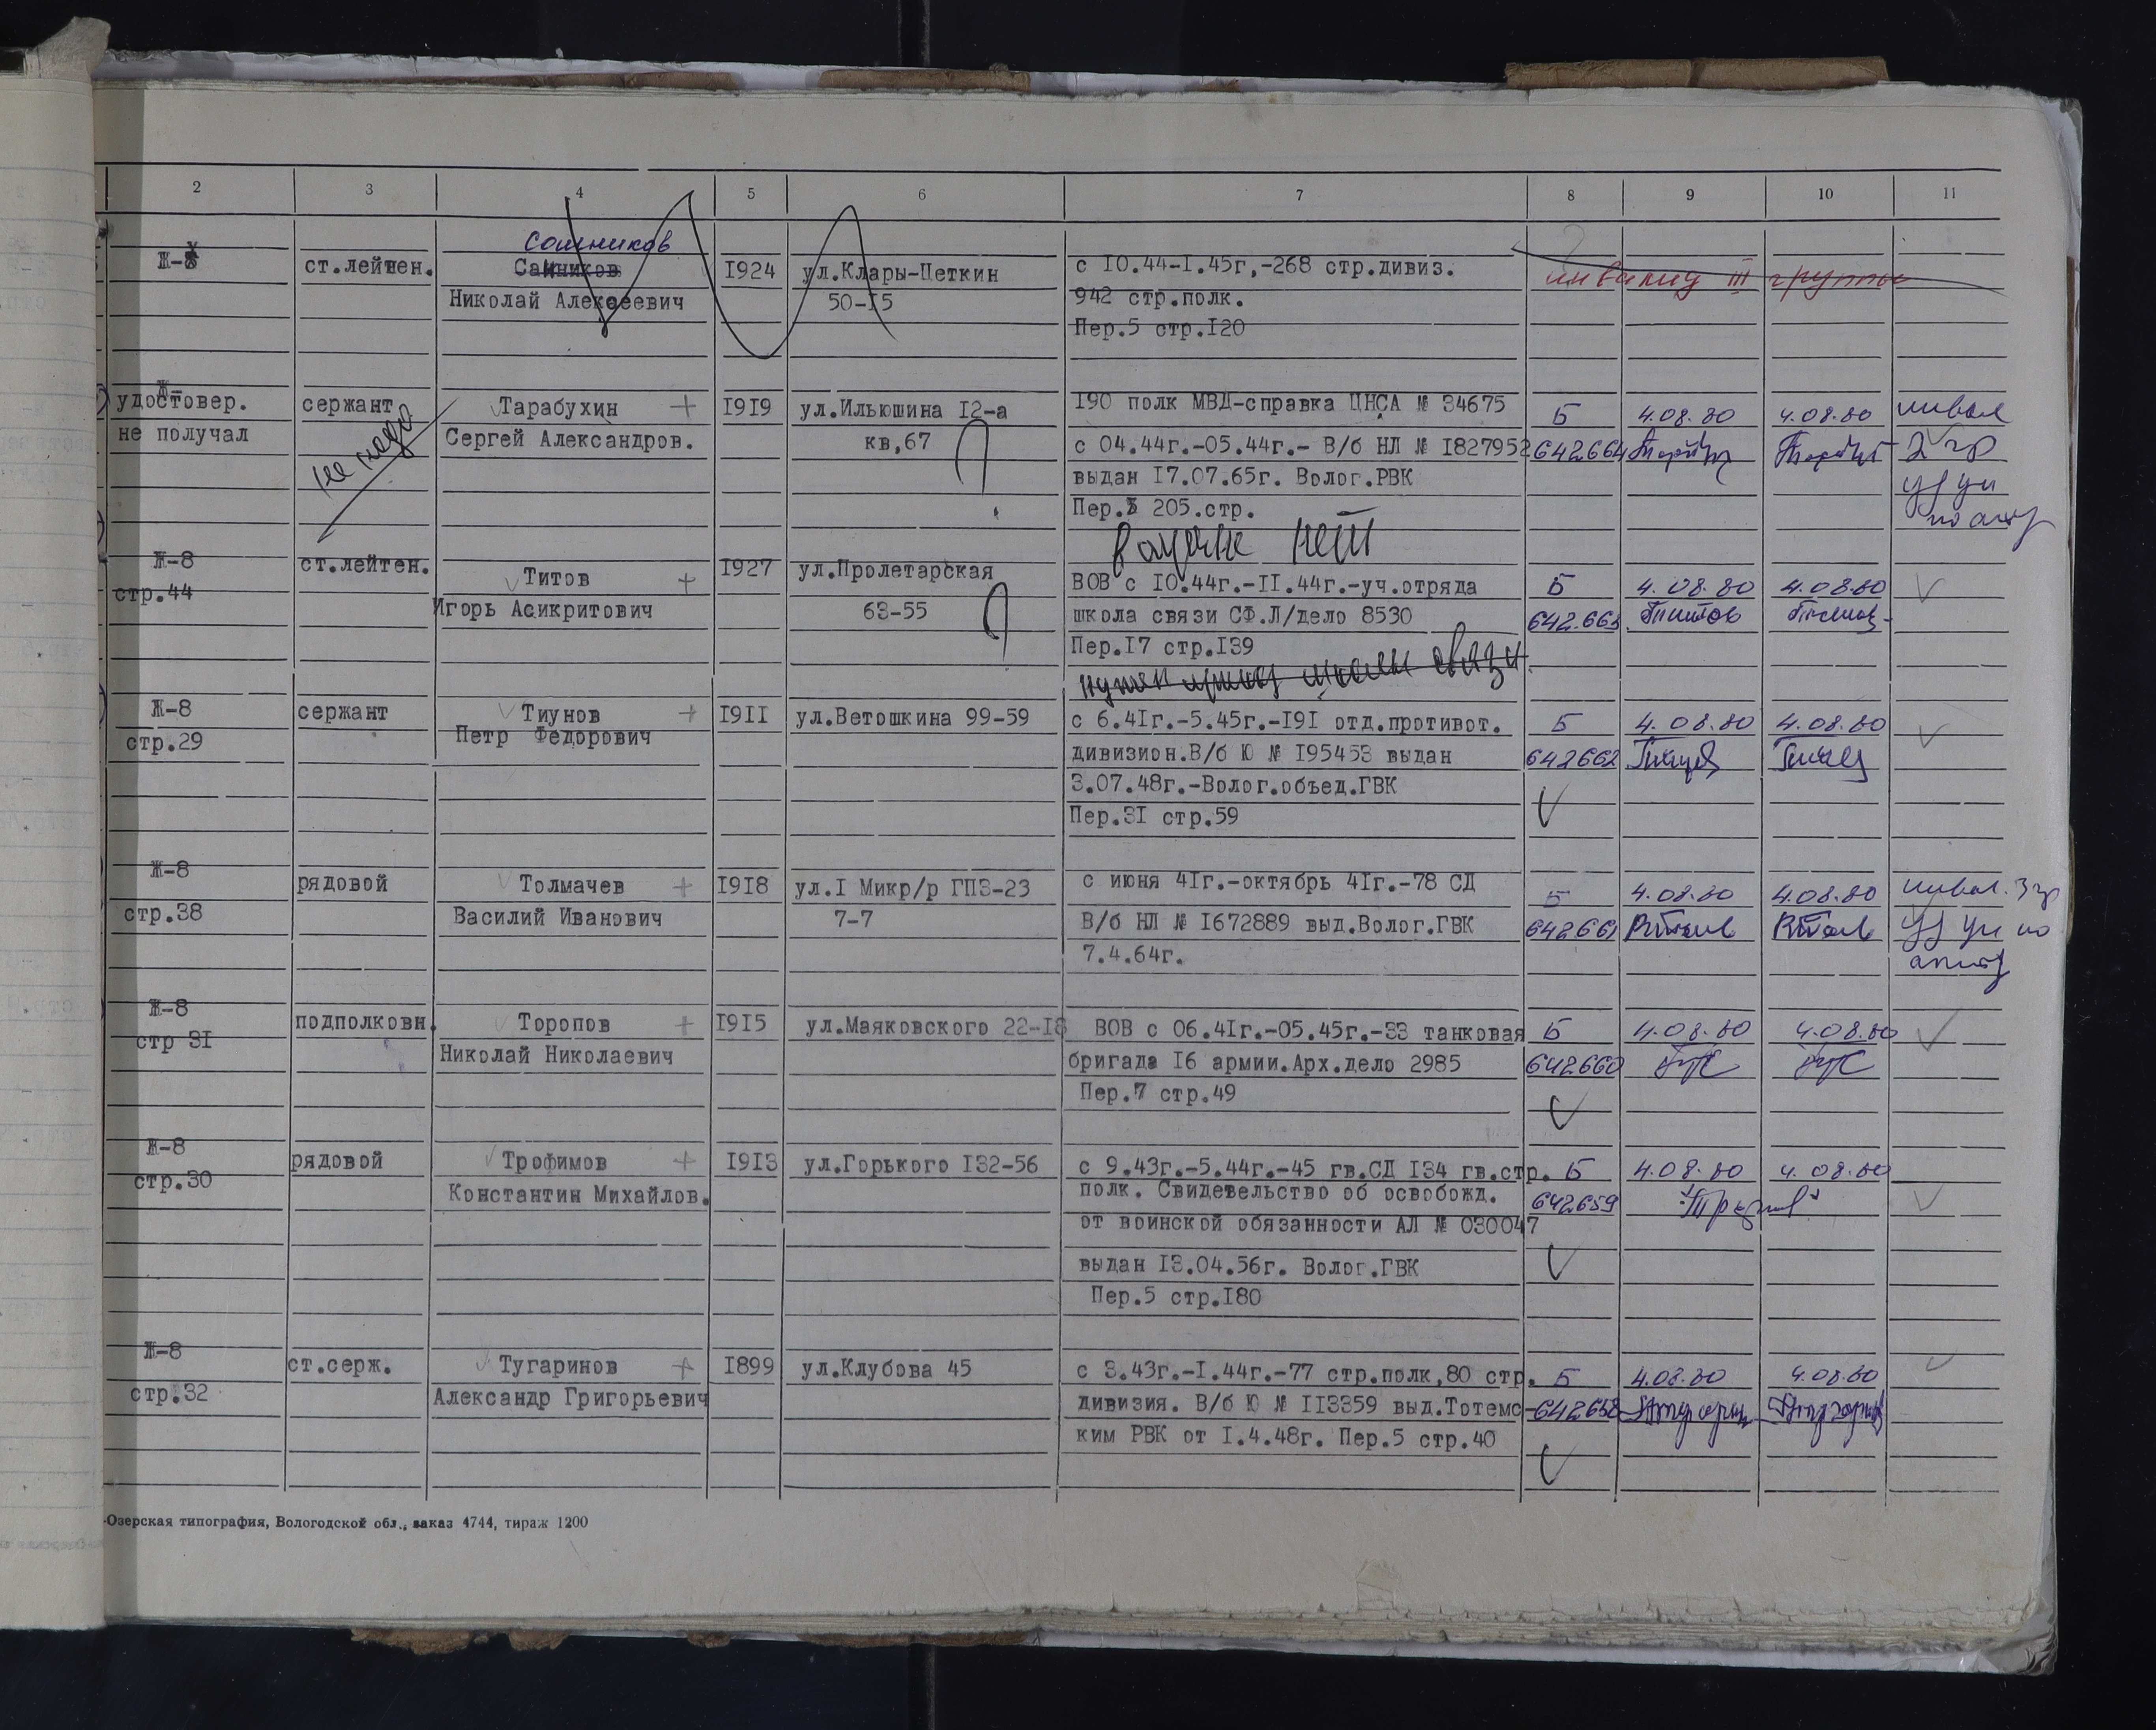 2 3 4 5 6 7 8 9 10 11
Сошников
Ж-8 ст.лейтен. Санников 1924 ул.Клары-Цеткин с 10.44-1.45г,-268 стр.дивиз. инвалид III группы
Николай Алексеевич 50-15 942 стр.полк.
Пер.5 стр.120
Ж-
удостовер. сержант Тарабухин + 1919 ул.Ильюшина 12-а 190 полк МВД-справка ЦНСА № 34675 Б 4.08.80 4.08.80 инвал
не получал Сергей Александров. кв,67 с 04.44г.-05.44г.- В/б НЛ № 1827952 642.664 2 гр
выдан 17.07.65г. Волог.РВК
Пер. 205.стр.
нет
Ж-8 ст.лейтен. Титов + 1927 ул.Пролетарская ВОВ с 10.44г.-11.44г.-уч.отряда Б 4.08.80 4.08.80
стр.44 Игорь Асикритович 63-55 школа связи СФ.Л/дело 8530 642.663 Титов
Пер.17 стр.139
школы связи
Ж-8 сержант Тиунов + 1911 ул.Ветошкина 99-59 с 6.41г.-5.45г.-191 отд.противот. Б 4.08.80 4.08.80
стр.29 Петр Федорович дивизион.В/б Ю № 195453 выдан 642662
3.07.48г.-Волог.объед.ГВК
Пер.31 стр.59
Ж-8 рядовой Толмачев + 1918 ул.1 Микр/р ГПЗ-23 с июня 41г.-октябрь 41г.-78 СД Б 4.08.80 4.08.80 инвал. 3 гр
стр.38 Василий Иванович 7-7 В/б НЛ № 1672889 выд.Волог.ГВК 642661
7.4.64г.
Ж-8 подполковн. Торопов + 1915 ул.Маяковского 22-18 ВОВ с 06.41г.-05.45г.-33 танковая Б 4.08.80 4.08.80
стр 31 Николай Николаевич бригада 16 армии.Арх.дело 2985 642660
Пер.7 стр.49
Ж-8 рядовой Трофимов + 1913 ул.Горького 132-56 с 9.43г.-5.44г.-45 гв.СД 134 гв.стр. Б 4.08.80 4.08.80
стр.30 Константин Михайлов. полк. Свидетельство об освобожд. 642659
от воинской обязанности АЛ № 030047
выдан 13.04.56г. Волог.ГВК
Пер.5 стр.180
Ж-8 ст.серж. Тугаринов + 1899 ул.Клубова 45 с 3.43г.-1.44г.-77 стр.полк,80 стр. Б 4.08.80 4.08.80
стр.32 Александр Григорьевич дивизия. В/б Ю № 113359 выд.Тотемс- 642658
ким РВК от 1.4.48г. Пер.5 стр.40
-Озерская типография, Вологодской обл., заказ 4744, тираж 1200